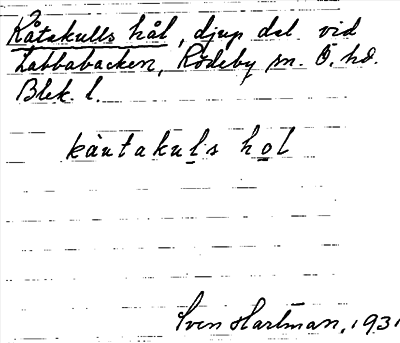 Råtakulls hål, djup dal vid
Labbabacken, Rödeby sn. Ö. hd.
Blek. l.
kàutakuls hol
Sven Hartman, 1931